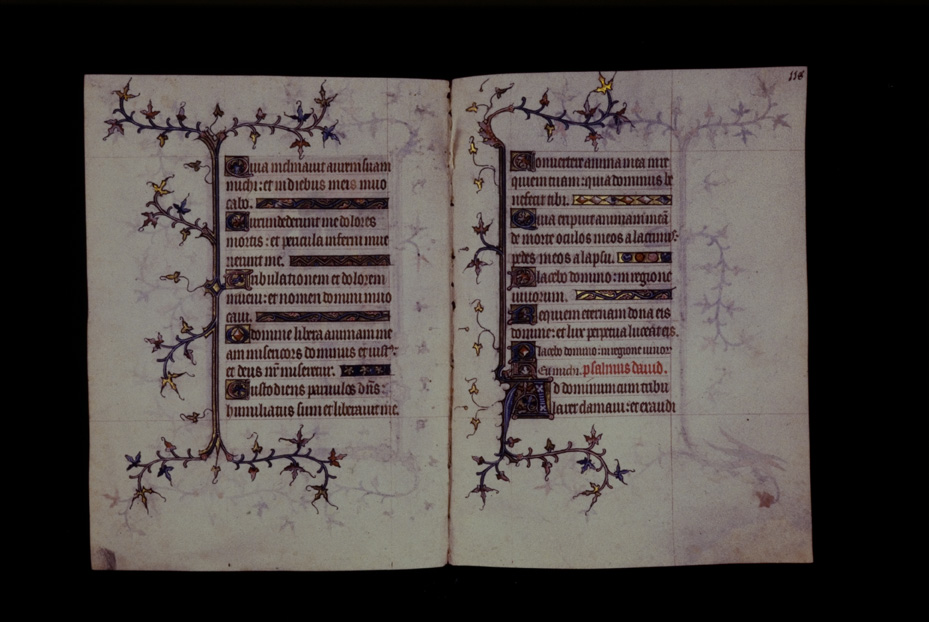 Quia inclinavit aurem suam
michi: et in diebus meis invo
cabo.
Circumdederunt me dolores
mortis: et pericula inferni inve
nerunt me.
Tribulationem et dolorem
inveni: et nomen domini invo
cavi.
O domine libera animam me
am misericors dominus et iustus:
et deus nr̄ miseretur.
Custodiens parvulos dn̄s:
humiliatus sum et liberavit me.
116
Convertere anima mea in re
quiem tuam: quia dominus be
nefecit tibi.
Quia eripuit animam meā
de morte oculos meos a lacrimis:
pedes meos a lapsu.
Placebo domino: in regione
vivorum.
Requiem eternam dona eis
domine: et lux perpetua luceat eis.
Placebo domino: in regione vivor
Eu michi. psalmus david.
Ad dominum cum tribu
larer clamavi: et exaudi